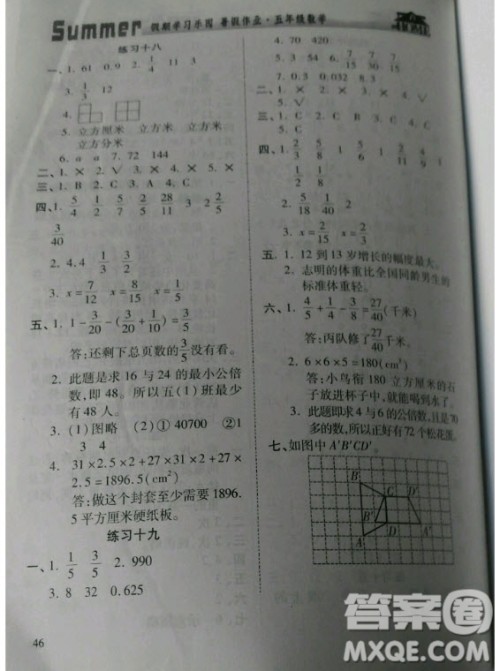 Summer 假期学习乐园 暑假作业·五年级数学
练习十八
一、1. 61 0.9 2. 11/20
3. 1/3 12
4.
5. 立方厘米 立方米 立方米
立方分米
6. a a 7. 72 144
二、1. × 2. × 3. ×
三、1. B 2. C 3. A 4. C
四、1. 5/4 1/2 5/7 2/5 28/11 3 2 5/8
3/40
2. 4.4 1/3 3/2
3. x=7/12 x=8/15 x=1/5
五、1. 1-3/20-(3/20+1/10)=3/5
答:还剩下总页数的3/5没有看。
2. 此题是求 16 与 24 的最小公倍
数,即 48。所以五(1)班最少
有 48 人。
3. (1)图略 (2)① 40700 ②1
3 4
4. 31×2.5×2+27×31×2+27
×2.5=1896.5(cm²)
答:做这个封套至少需要 1896.
5 平方厘米硬纸板。
练习十九
一、1. 1/5 3/5 2. 990
3. 8 32 0.625
4. 70 420
7. 8 8. 0.5 0.032
二、1. × 2. × 3. × 4. ×
5. √
三、1. C 2. A 3. B 4. A 5. C
四、1.
2. 5/18 2/15 40 2
3. x=2/15 x=5/8
五、1. 12 到 13 岁增长的幅度最大。
2. 志明的体重比全国同龄男生的
标准体重轻。
六、1. 4/5+1/4-3/8=27/40(千米)
答:丙队修了27/40千米。
2. 6×6×5=180(cm³)
答:小鸟衔 180 立方厘米的石
子放进杯子中,就能喝到水了。
3. 此题即求 4 与 6 的公倍数,且是70
多的数,所以正好有 72 个松花蛋。
七、如图中 A'B'CD'。
B
A
B'
A'
C
D
D'
46
答案圈
MXQE.COM